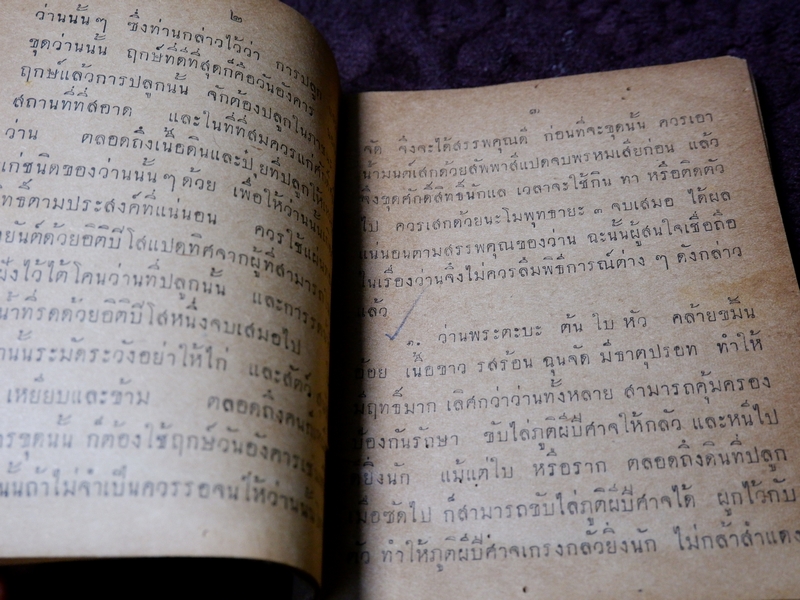 ๒
ว่านนั้นๆ ซึ่งท่านกล่าวไว้ว่า การปลูก
ขุดว่านนั้น ฤกษ์ที่ดีที่สุดก็คือวันอังคาร
ฤกษ์แล้วการปลูกนั้น จักต้องปลูกใน
สถานที่ที่สอาด และในที่ที่สมควรแก่
ว่าน ตลอดถึงเนื้อดินและปุ๋ยที่ปลูกให้
แก่ชนิดของว่านนั้นๆด้วย เพื่อให้ว่านนั้น
ตามประสงค์ที่แน่นอน ควรใช้
ด้วยอิติปิโสแปดทิศจากผู้ที่สามารถ
ฝังไว้ใต้โคนว่านที่ปลูกนั้น และการรด
น้ำที่รดด้วยอิติปิโสหนึ่งจบเสมอไป
ระมัดระวังอย่าให้ไก่ และสัตว์
เหยียบและข้าม ตลอดถึงคน
การขุดนั้น ก็ต้องใช้ฤกษ์วันอังคาร
นั้นถ้าไม่จำเป็นควรรอจนให้ว่านนั้น
๓
จัด จึงจะได้สรรพคุณดี ก่อนที่จะขุดนั้น ควรเอา
น้ำมนต์เสกด้วยสัพพาสีแปดจบพรหมเสียก่อน แล้ว
จึงขุดศักดิ์สิทธิ์นักแล เวลาจะใช้กิน ทา หรือติดตัว
ไป ควรเสกด้วยนะโมพุทธายะ ๓ จบเสมอ ได้ผล
แน่นอนตามสรรพคุณของว่าน ฉะนั้นผู้สนใจเชื่อถือ
ในเรื่องว่านจึงไม่ควรลืมพิธีการณ์ต่าง ๆ ดังกล่าว
แล้ว
ว่านพระตะบะ ต้น ใบ หัว คล้ายขมิ้น
อ้อย เนื้อขาว รสร้อน ฉุนจัด มีธาตุปรอท ทำให้
มีฤทธิ์มาก เลิศกว่าว่านทั้งหลาย สามารถคุ้มครอง
ป้องกันรักษา ขับไล่ภูติผีปีศาจให้กลัว และหนีไป
ยิ่งนัก แม้แต่ใบ หรือราก ตลอดถึงดินที่ปลูก
เมื่อซัดไป ก็สามารถขับไล่ภูติผีปีศาจได้ ผูกไว้กับ
ตัว ทำให้ภูติผีปีศาจเกรงกลัวยิ่งนัก ไม่กล้าสำแดง